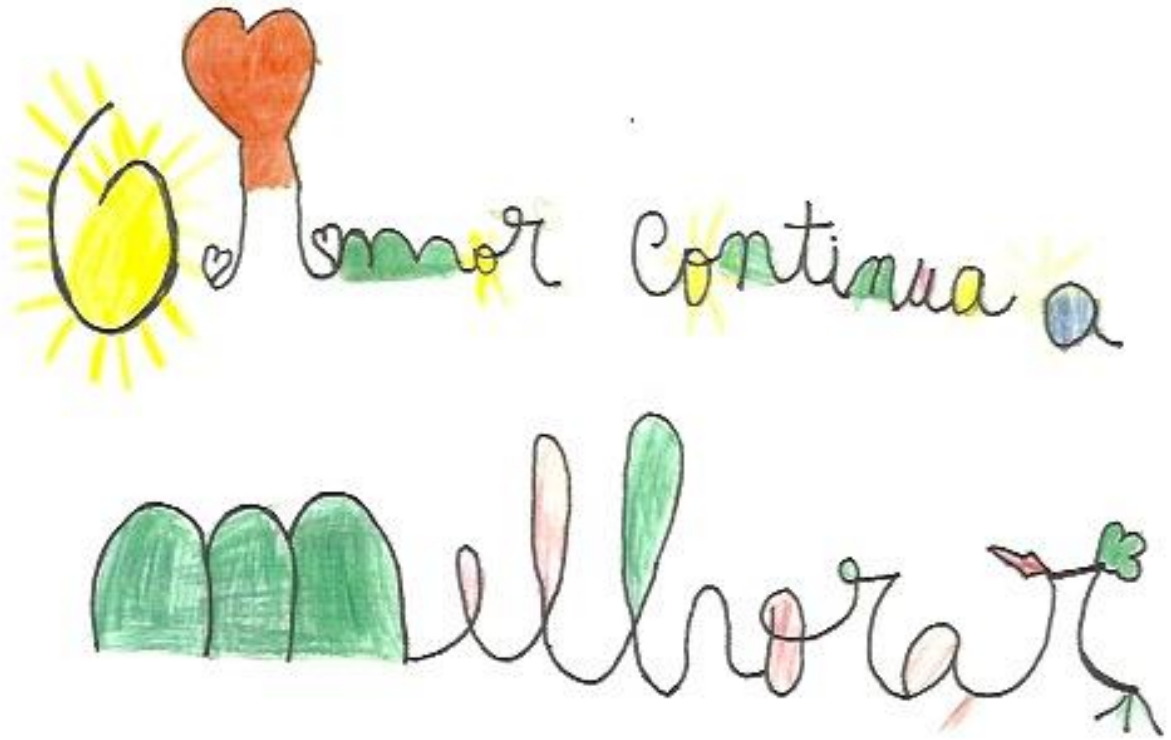 O Amor continua a
melhorar